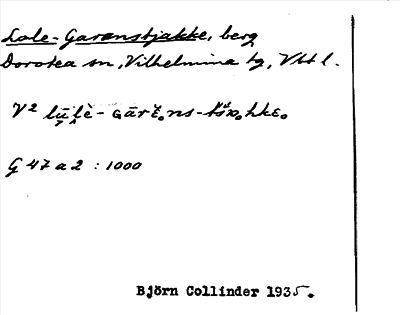 Lole-Garanstjakke, berg
Dorotea sn, Vilhelmina tg, Vbtl.
V2
G 47 a 2 : 1000
Björn Collinder 1935.